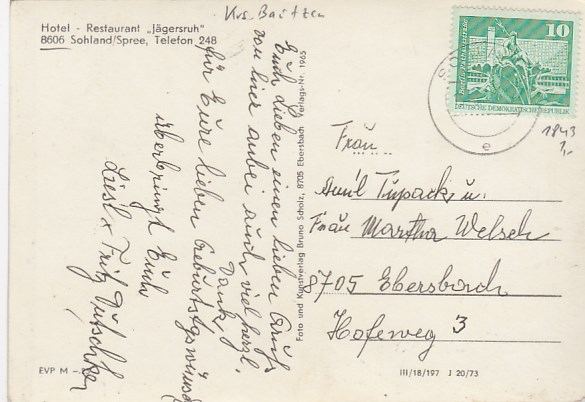 Krs. Bautzen
Hotel - Restaurant „Jägersruh"
8606 Sohland/Spree, Telefon 248
Euch Lieben einen lieben Gruß
von hier anbei auch viel herzl.
Dank,
für Eure lieben Geburtstgswünsche
überbringt Euch
Liesl + Fritz
Foto und Kunstverlag Bruno Scholz, 8705 Ebersbach Verlags-Nr. 1965
10
DEUTSCHE DEMOKRATISCHE REPUBLIK
e
1843
1,-
Frau
u.
Frau Martha Welsch
8705 Ebersbach
Hofeweg 3
EVP M –.
III/18/197 J 20/73